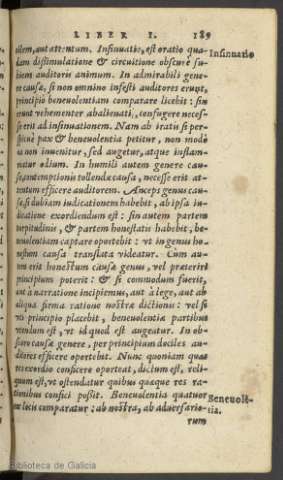 LIBER I. 189
cilem, aut attentum. Insinuatio, est oratio qua-
dam dissimulatione & circuitione obscurè su-
biens auditoris animum. In admirabili gene-
re causæ, si non omnino infesti auditores erunt,
principio beneuolentiam comparare licebit: sin
erunt vehementer abalienati, confugere neces-
se erit ad insinuationem. Nam ab iratis si per-
spicuè pax & beneuolentia petitur, non modò
ea non inuenitur, sed augetur, atque inflam-
matur odium. In humili autem genere cau-
sæ, contemptionis tollendæ causa, necesse erit at-
tentum efficere auditorem. Anceps genus cau-
sæ, si dubiam iudicationem habebit, ab ipsa iu-
dicatione exordiendum est: sin autem partem
turpitudinis, & partem honestatis habebit, be-
neuolentiam captare oportebit: vt in genus ho-
nestum causa translata videatur. Cum au-
tem erit honestum causæ genus, vel præteriri
principium poterit: & si commodum fuerit,
aut à narratione incipiemus, aut à lege, aut ab
aliqua firma ratione nostræ dictionis: vel si
vti principio placebit, beneuolentiæ partibus
vtendum est, vt id quod est augeatur. In ob-
scuro causæ genere, per principium dociles au-
ditores efficere oportebit. Nunc quoniam quas
res exordio conficere oporteat, dictum est, reli-
quum est, vt ostendatur quibus quæque res ra-
tionibus confici possit. Beneuolentia quatuor
ex locis comparatur: ab nostra, ab aduersario-
rum
Insinuatio
Beneuolē-
tia.
Biblioteca de Galicia